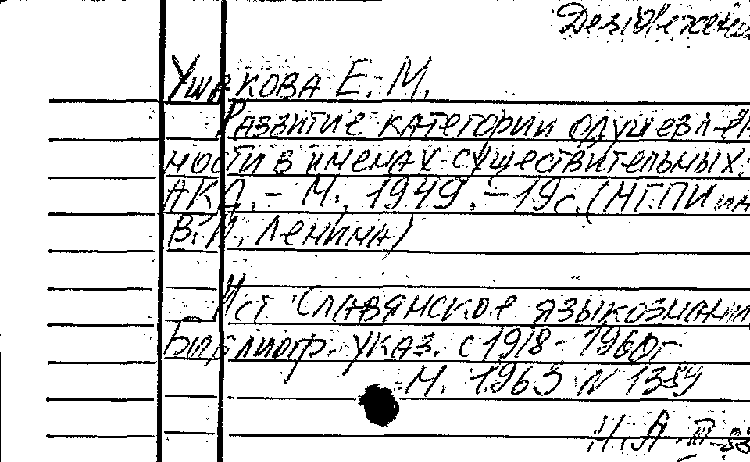 Ушакова Е. М.
Развитие категории одушевлен-
ности в именах существительных.
АКД. – М., 1949. – 19с. (МГПИ им
В.И. Ленина)
Ист. Славянское языкознани
Библиогр. указ. с 1918 - 1960г
М. 1963 N 1389